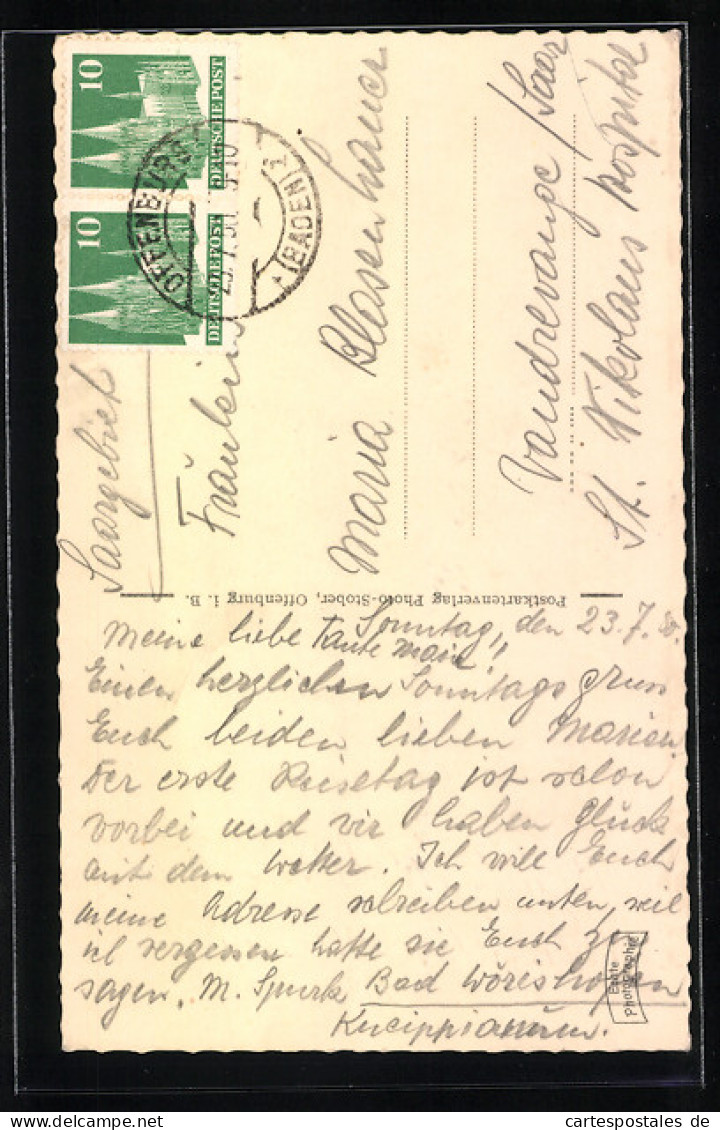 10
DEUTSCHE POST
10
DEUTSCHE POST
OFFENBURG
(BADEN) 2
Saargebiet
Fräulein
Maria Blasenhauer
Vaudrevange / Saar
St. Nikolaus Hospital
Postkartenverlag Photo-Stober, Offenburg i. B.
Sonntag, den 23.7.50.
Meine liebe Tante Marie!
Einen herzlichen Sonntagsgruss
Euch beiden lieben Marien.
Der erste Reisetag ist schon
vorbei und wir haben Glück
mit dem Wetter. Ich will Euch
meine Adresse schreiben unten, weil
ich vergessen hatte sie Euch zu
sagen. M. Spurk Bad Wörishofen
Kneippianum.
Echte
Photographie
www.oldthing.de
cartespostales.de